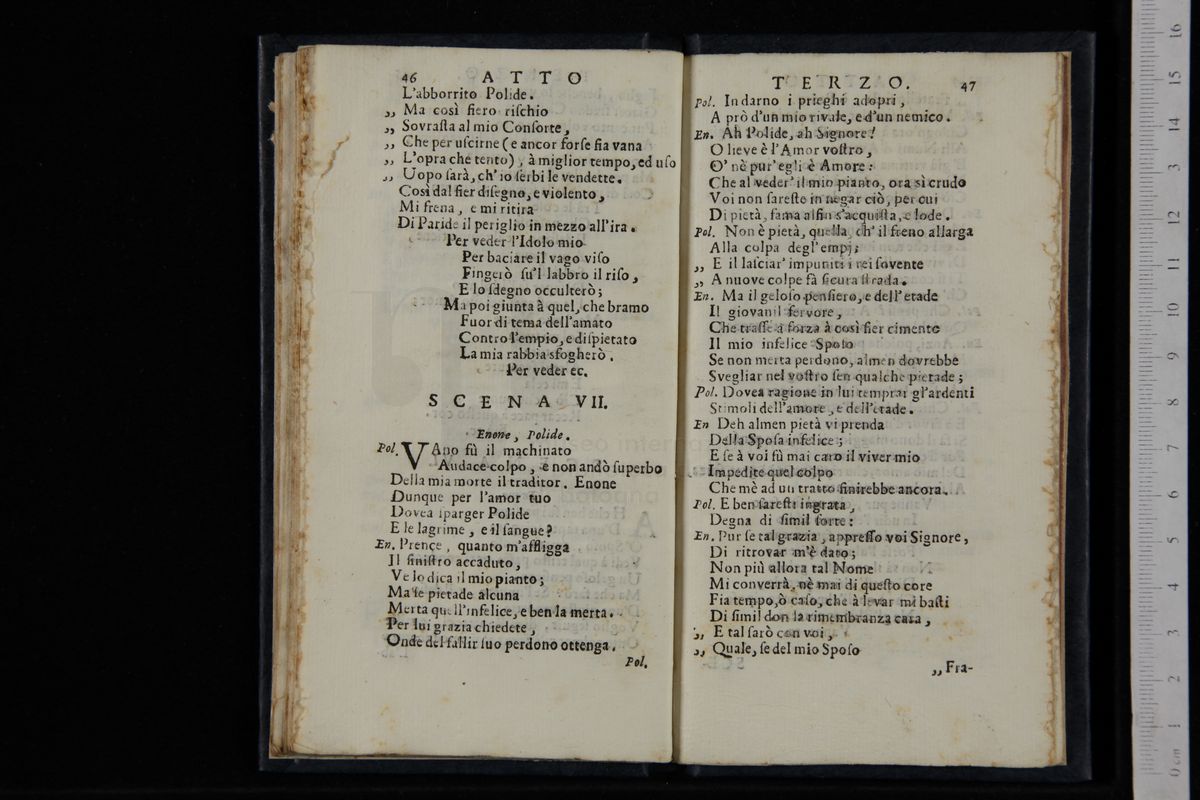 46 ATTO
L'abborrito Polide.
,, Ma così fiero riſchio
,, Sovraſta al mio Conſorte,
,, Che per uſcirne (e ancor forſe fia vana
,, L'opra che tento), à miglior tempo, ed uſo
,, Uopo ſarà, ch'io ſerbi le vendette.
Così dal fier diſegno, e violento,
Mi frena, e mi ritira
Di Paride il periglio in mezzo all'ira.
Per veder l'Idolo mio
Per baciare il vago viſo
Fingerò ſu'l labbro il riſo,
E lo ſdegno occulterò;
Ma poi giunta à quel, che bramo
Fuor di tema dell'amato
Contro l'empio, e diſpietato
La mia rabbia sfogherò.
Per veder ec.
SCENA VII.
Enone, Polide.
Pol. VAno fù il machinato
Audace colpo, e non andò ſuperbo
Della mia morte il traditor. Enone
Dunque per l'amor tuo
Dovea ſparger Polide
E le lagrime, e il ſangue?
En. Prence, quanto m'affligga
Il ſiniſtro accaduto,
Ve lo dica il mio pianto;
Ma ſe pietade alcuna
Merta quell'infelice, e ben la merta.
Per lui grazia chiedete,
Onde del fallir ſuo perdono ottenga.
Pol.
TERZO. 47
Pol. Indarno i prieghi adopri,
A prò d'un mio rivale, e d'un nemico.
En. Ah Polide, ah Signore!
O lieve è l'Amor voſtro,
O' nè pur' egli è Amore:
Che al veder' il mio pianto, ora sì crudo
Voi non fareſte in negar ciò, per cui
Di pietà, fama alfin s'acquiſta, e lode.
Pol. Non è pietà, quella, ch' il freno allarga
Alla colpa degl'empj;
,, E il laſciar' impuniti i rei ſovente
,, A nuove colpe fà ſicura ſtrada.
En. Ma il geloſo penſiero, e dell'etade
Il giovanil fervore,
Che traſſe a forza à così fier cimento
Il mio infelice Spoſo
Se non merta perdono, almen dovrebbe
Svegliar nel voſtro ſen qualche pietade;
Pol. Dovea ragione in lui temprar gl'ardenti
Stimoli dell'amore, e dell'etade.
En Deh almen pietà vi prenda
Della Spoſa infelice;
E ſe à voi fù mai caro il viver mio
Impedite quel colpo
Che mè ad un tratto finirebbe ancora.
Pol. E ben ſareſti ingrata,
Degna di ſimil ſorte:
En. Pur ſe tal grazia, appreſſo voi Signore,
Di ritrovar m'è dato;
Non più allora tal Nome
Mi converrà, nè mai di queſto core
Fia tempo, ò caſo, che à levar mi baſti
Di ſimil don la rimembranza cara,
,, E tal farò con voi,
,, Quale, ſe del mio Spoſo
,, Fra-